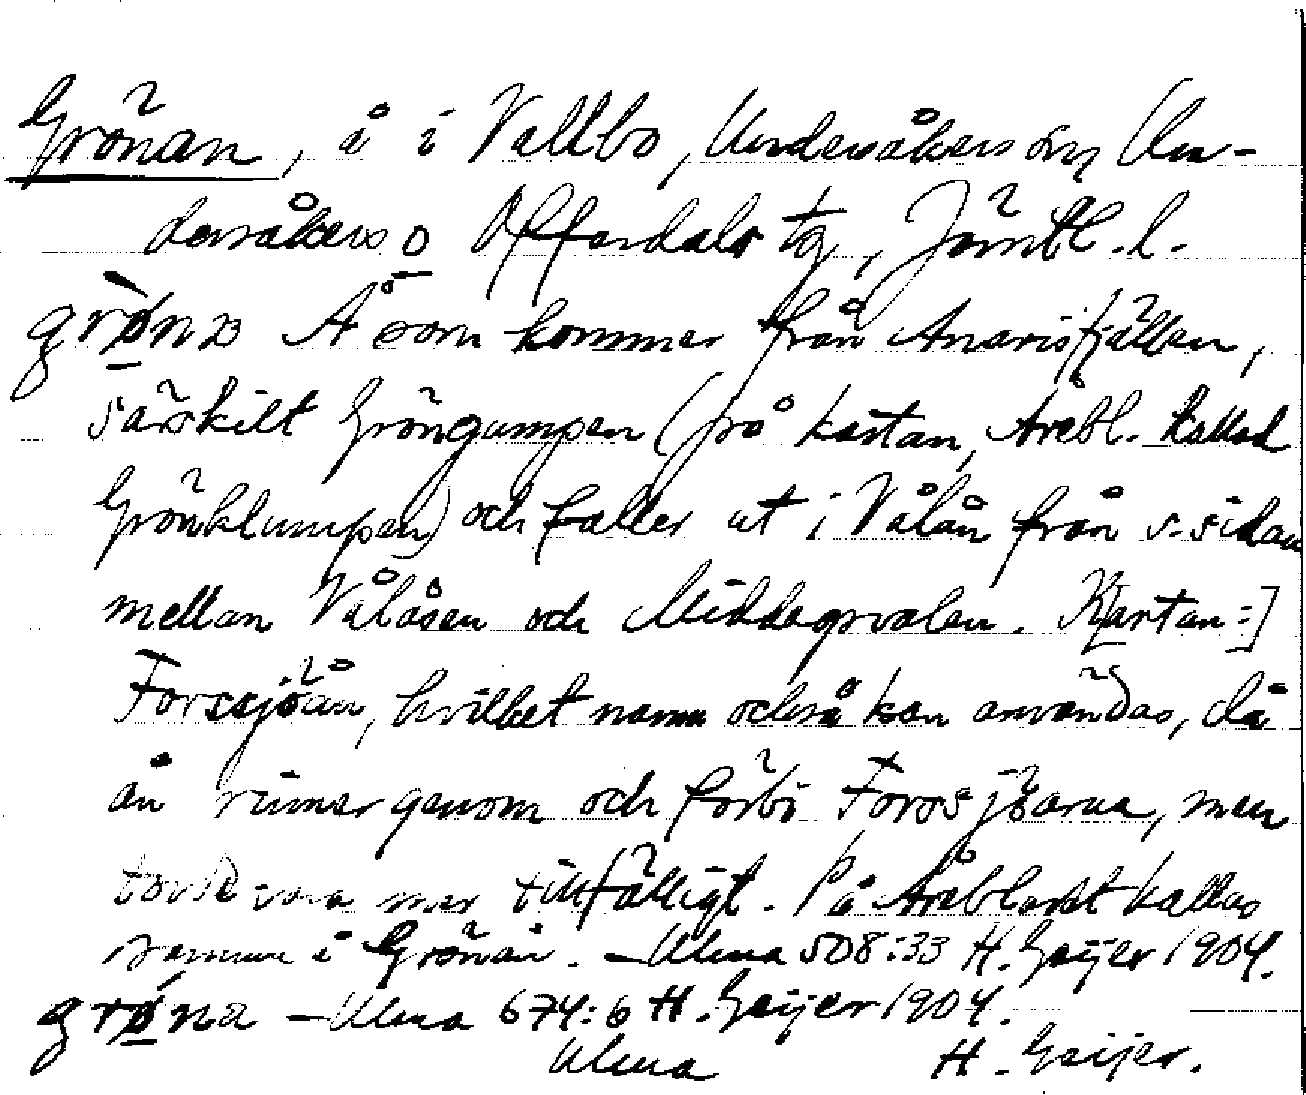 Grönan, å i Vallbo, Undersåkers sn, Un-
dersåkers o Offerdals tg, Jämtl. l.
grø̀na Å som kommer från Anarisfjällen,
särskilt Gröngumpen (på kartan, Årebl. kallad
Grönklumpen) och faller ut i Vålån från s. sidan
mellan Vålåsen och Middagsvalen. Kartan =]
Forssjöån, hvilket namn också kan användas, då
ån rinner genom och förbi Forssjöarna, men
torde vara mer tillfälligt. På Årebladet kallas
samma å Grönån. – Ulma 508:33 H. Geijer 1904.
grǿna – Ulma 674:6 H. Geijer 1904.
Ulma H. Geijer.